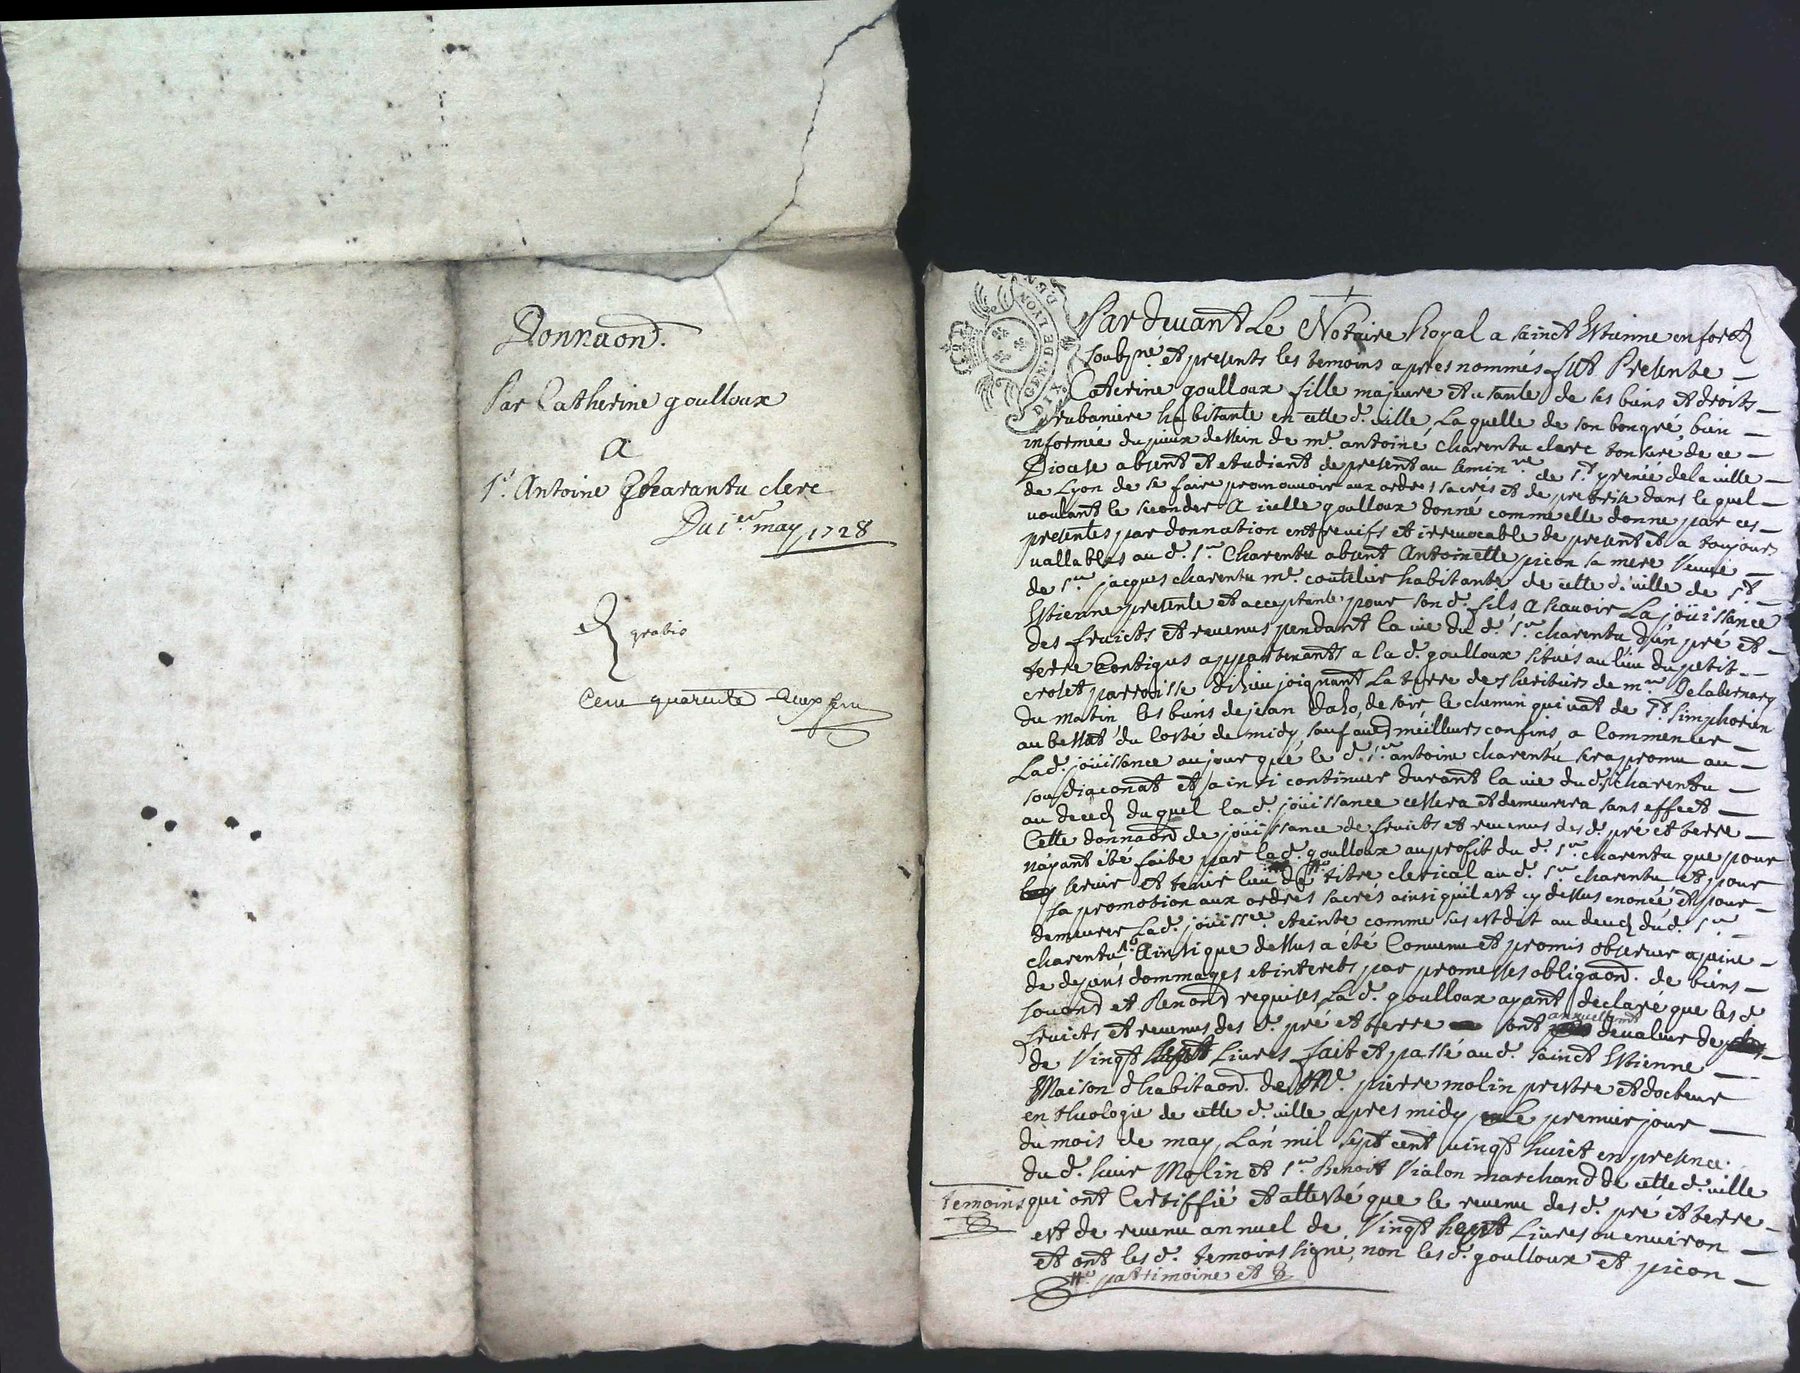 Donnaon.
Par Catherine goulloux
A
Sr. Antoine Charantu clerc
Du 1er may 1728
gratis
Cent quarente deux
GEN. DE LYON
DIX
Pardevant Le Notaire Royal a sainct Estienne en forest
soubzné et presents les temoins apres nommés fut Presente
Caterine goulloux fille majeure et usante de ses biens et droits
rubaniere habitante en cette d. ville, Laquelle de son bon gré bien
informée du pieux dessein de me. antoine charentu clerc tonsuré de ce
Diocese absent et etudiant de present au seminre de St yrenée de la ville
de Lyon de se faire promouvoir aux ordres sacrés et de pretrise dans le quel
voulant le seconder A icelle goulloux donné comme elle donne par ces
presentes par donnation entre vifs et irrevocable de present et a toujours
vallables au d. sr. Charentu absent Antoinette picon sa mere veuve
de sr. jacques charentu me. coutelier habitante de cette d. ville de St
Estienne presente et acceptante pour son d. fils A Scavoir La joüissance
des fruicts et revenus pendant la vie du d. sr. charentu d'un pré et
terre Contigus appartenants a la d. goulloux situés au lieu du petit
crolet parroisse joignant La terre des heritiers de mr. Delabernary
du matin, les biens de jean de soir le chemin qui vat de St. Simphorien
au bessat du Costé de midy, sauf au meilleurs confins, a Commencer
La d. joüissance au jour que le d. sr. antoine charentu sera promu au
soudiaconat et ainsi continuer durant la vie du d. sr. charentu
au deces du quel la d. joüissance cessera et demeurera sans effect
Cette donnaon de joüissance de fruicts et revenus des d. pré et terre
n'ayant été faite par la d. goulloux au profit du d. sr. charentu que pour
servir et tenir lieu de titre clerical au d. sr. charentu et pour
sa promotion aux ordres sacrés ainsi qu'il est cy dessus enoncé et pour
demeurer La d. joüissce eteinte comme sus est dit au deces du d. sr.
charentu Ainsi que dessus a été Convenu et promis observer a peine
de depens dommages et interets par promesses obligaon. de biens
soumons et Renons requises, La d. goulloux ayant declaré que les d.
fruicts et revenus des d. pré et terre sont annuellemt de valeur de
de Vingt sept Livres fait et passé au d. sainct Estienne
Maison d'habitaon. de Me. pierre molin prestre et docteur
en theologie de cette d. ville apres midy Le premier jour
du mois de may, L'an mil sept cent vingt huict en presence
du d. sieur Molin et sr. Benoit Vialon marchand de cette d. ville
Temoins qui ont Certiffié et attesté que le revenu des d. pré et terre
est de revenu annuel de Vingt sept Livres ou environ
et ont les d. temoins signé, non les d. goulloux et picon
patrimoine et